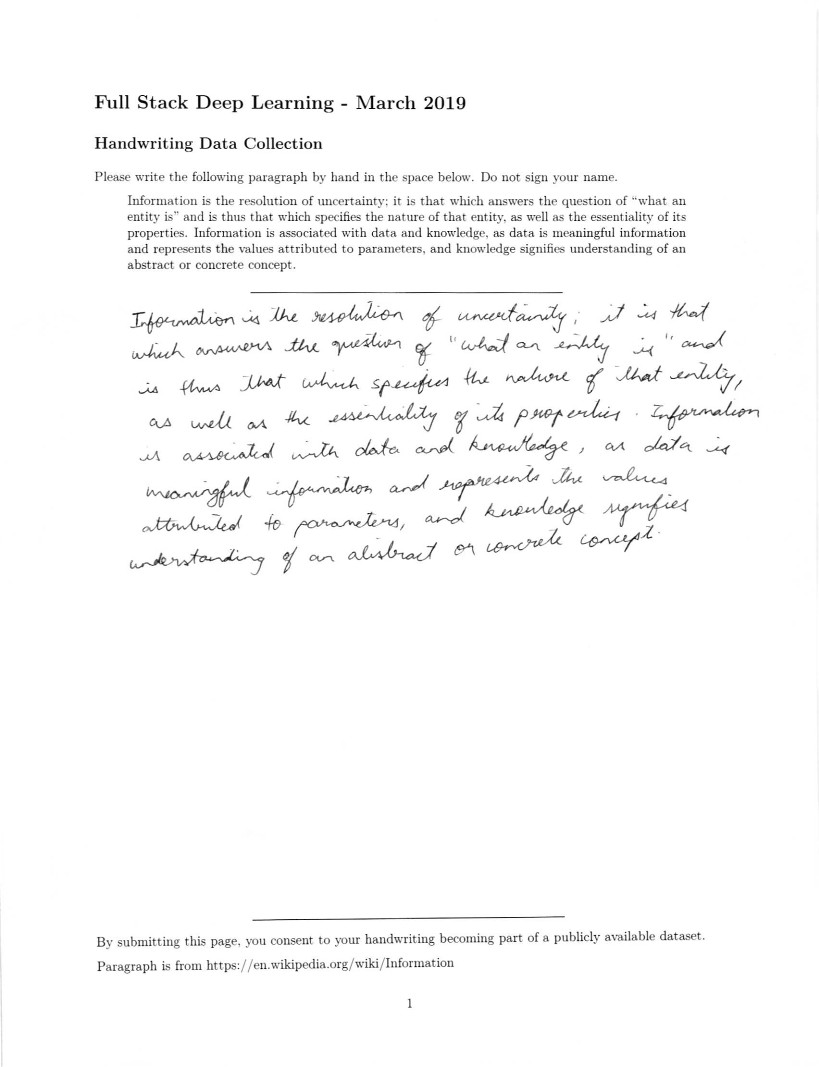 Full Stack Deep Learning - March 2019
Handwriting Data Collection
Please write the following paragraph by hand in the space below. Do not sign your name.
Information is the resolution of uncertainty; it is that which answers the question of “what an
entity is” and is thus that which specifies the nature of that entity, as well as the essentiality of its
properties. Information is associated with data and knowledge, as data is meaningful information
and represents the values attributed to parameters, and knowledge signifies understanding of an
abstract or concrete concept.
Information is the resolution of uncertainity; it is that
which answers the question of "what an entity is" and
is thus that which specifies the nature of that entity,
as well as the essentiality of its properties. Information
is associated with data and knowledge, as data is
meaningful information and represents the values
attributed to parameters, and knowledge signifies
understanding of an abstract or concrete concept.
By submitting this page, you consent to your handwriting becoming part of a publicly available dataset.
Paragraph is from https://en.wikipedia.org/wiki/Information
1